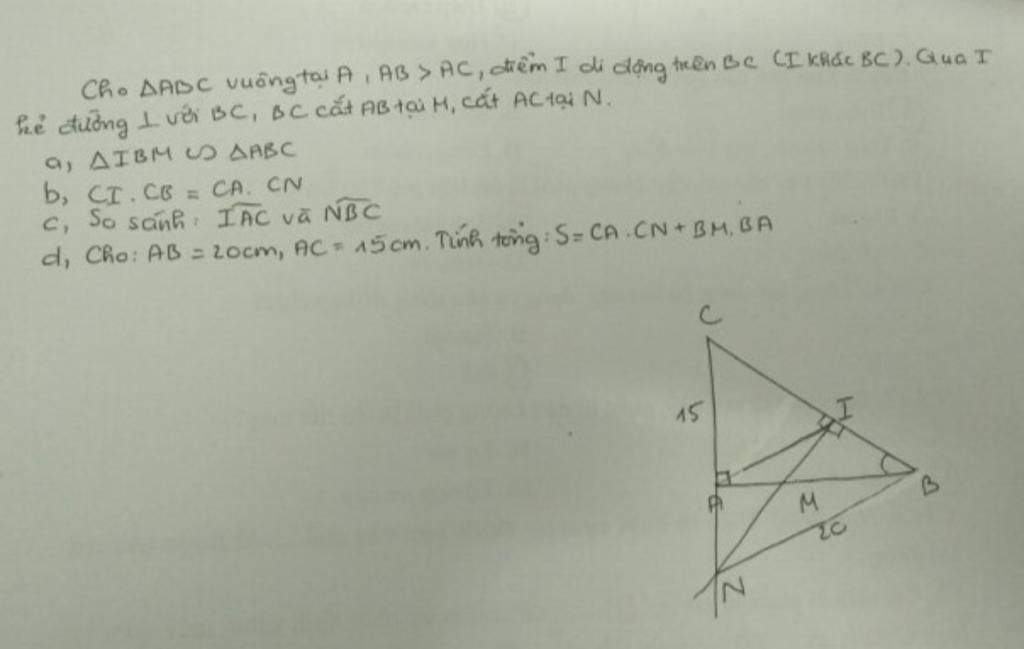 Cho ΔABC vuông tại A, AB > AC, điểm I di động trên BC (I khác BC). Qua I
kẻ đường ⊥ với BC, BC cắt AB tại M, cắt AC tại N.
a, ΔIBM ∽ ΔABC
b, CI . CB = CA . CN
c, So sánh: IAC và NBC
d, Cho: AB = 20cm, AC = 15cm. Tính tổng: S = CA . CN + BM . BA
C
15
I
A
M
B
20
N